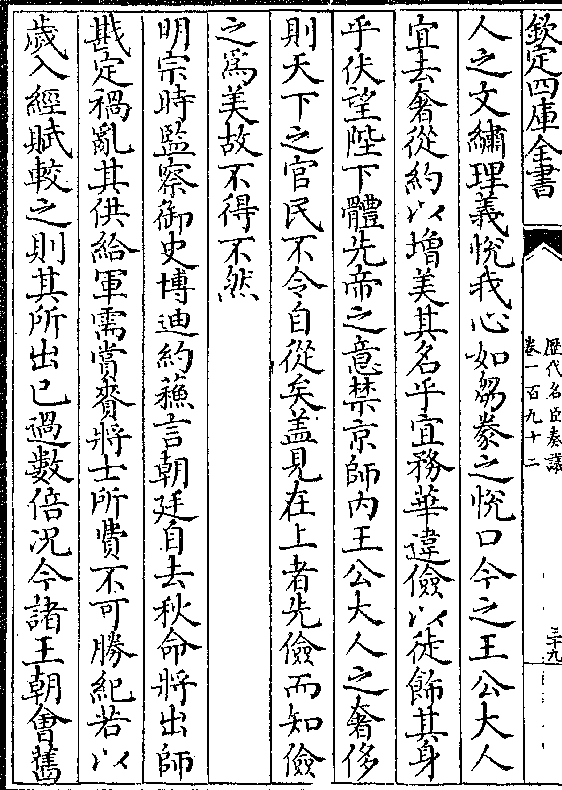 欽定四庫全書
歷代名臣奏議
卷一百九十二
三十九
人之文繡理義悅我心如芻豢之悅口今之王公大人
宜去奢從約以增美其名乎宜務華違儉以徒飾其身
乎伏望陛下體先帝之意禁京師內王公大人之奢侈
則天下之官民不令自從矣盖見在上者先儉而知儉
之為美故不得不然
明宗時監察御史博迪約蘓言朝廷自去秋命將出師
戡定禍亂其供給軍需賞賚將士所費不可勝紀若以
歲入經賦較之則其所出已過數倍况今諸王朝㑹舊